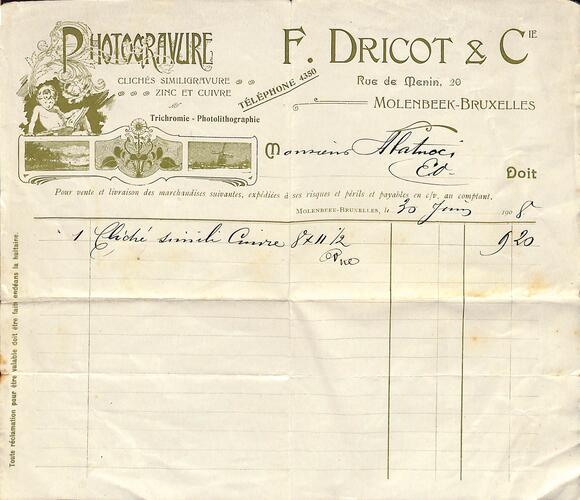 PHOTOGRAVURE
CLICHÉS SIMILIGRAVURE
ZINC ET CUIVRE
Trichromie - Photolithographie
TÉLÉPHONE 4350
F. DRICOT & CIE
Rue de Menin, 20
MOLENBEEK-BRUXELLES
Monsieur
Doit
Pour vente et livraison des marchandises suivantes, expédiées à ses risques et périls et payables en c/v, au comptant.
MOLENBEEK-BRUXELLES, le 30 Juin 1908
1 Cliché simili Cuivre 8 x 11 1/2 9 20
Toute réclamation pour être valable doit être faite endéans la huitaine.